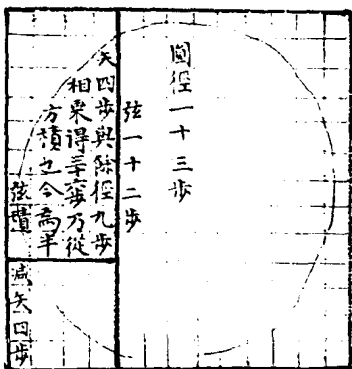 圓徑一十三步
弦一十二步
矢四步與除徑九步
相乗得三十六步乃從
方積之今為半
弦積
减矢四步